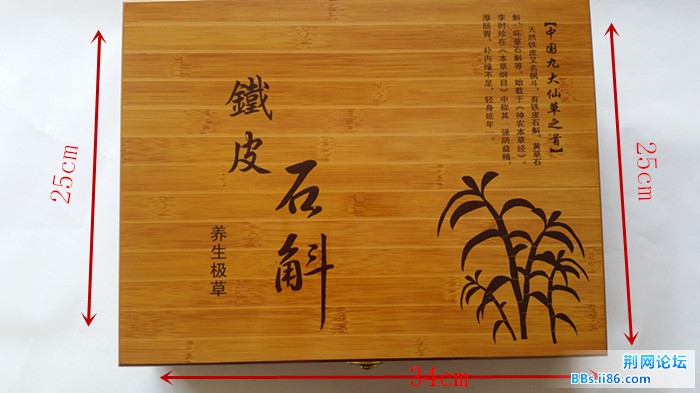 【中国九大仙草之首】
天然铁皮又名枫斗，有铁皮石斛、黄草石
斛、环草石斛等。始载于《神农本草经》。
李时珍在《本草纲目》中称其 强阴益精，
厚肠胃、不足，轻身延年。
鐵皮
石斛
养生极草
25cm
25cm
34cm
荆网论坛
BBs.ii86.com